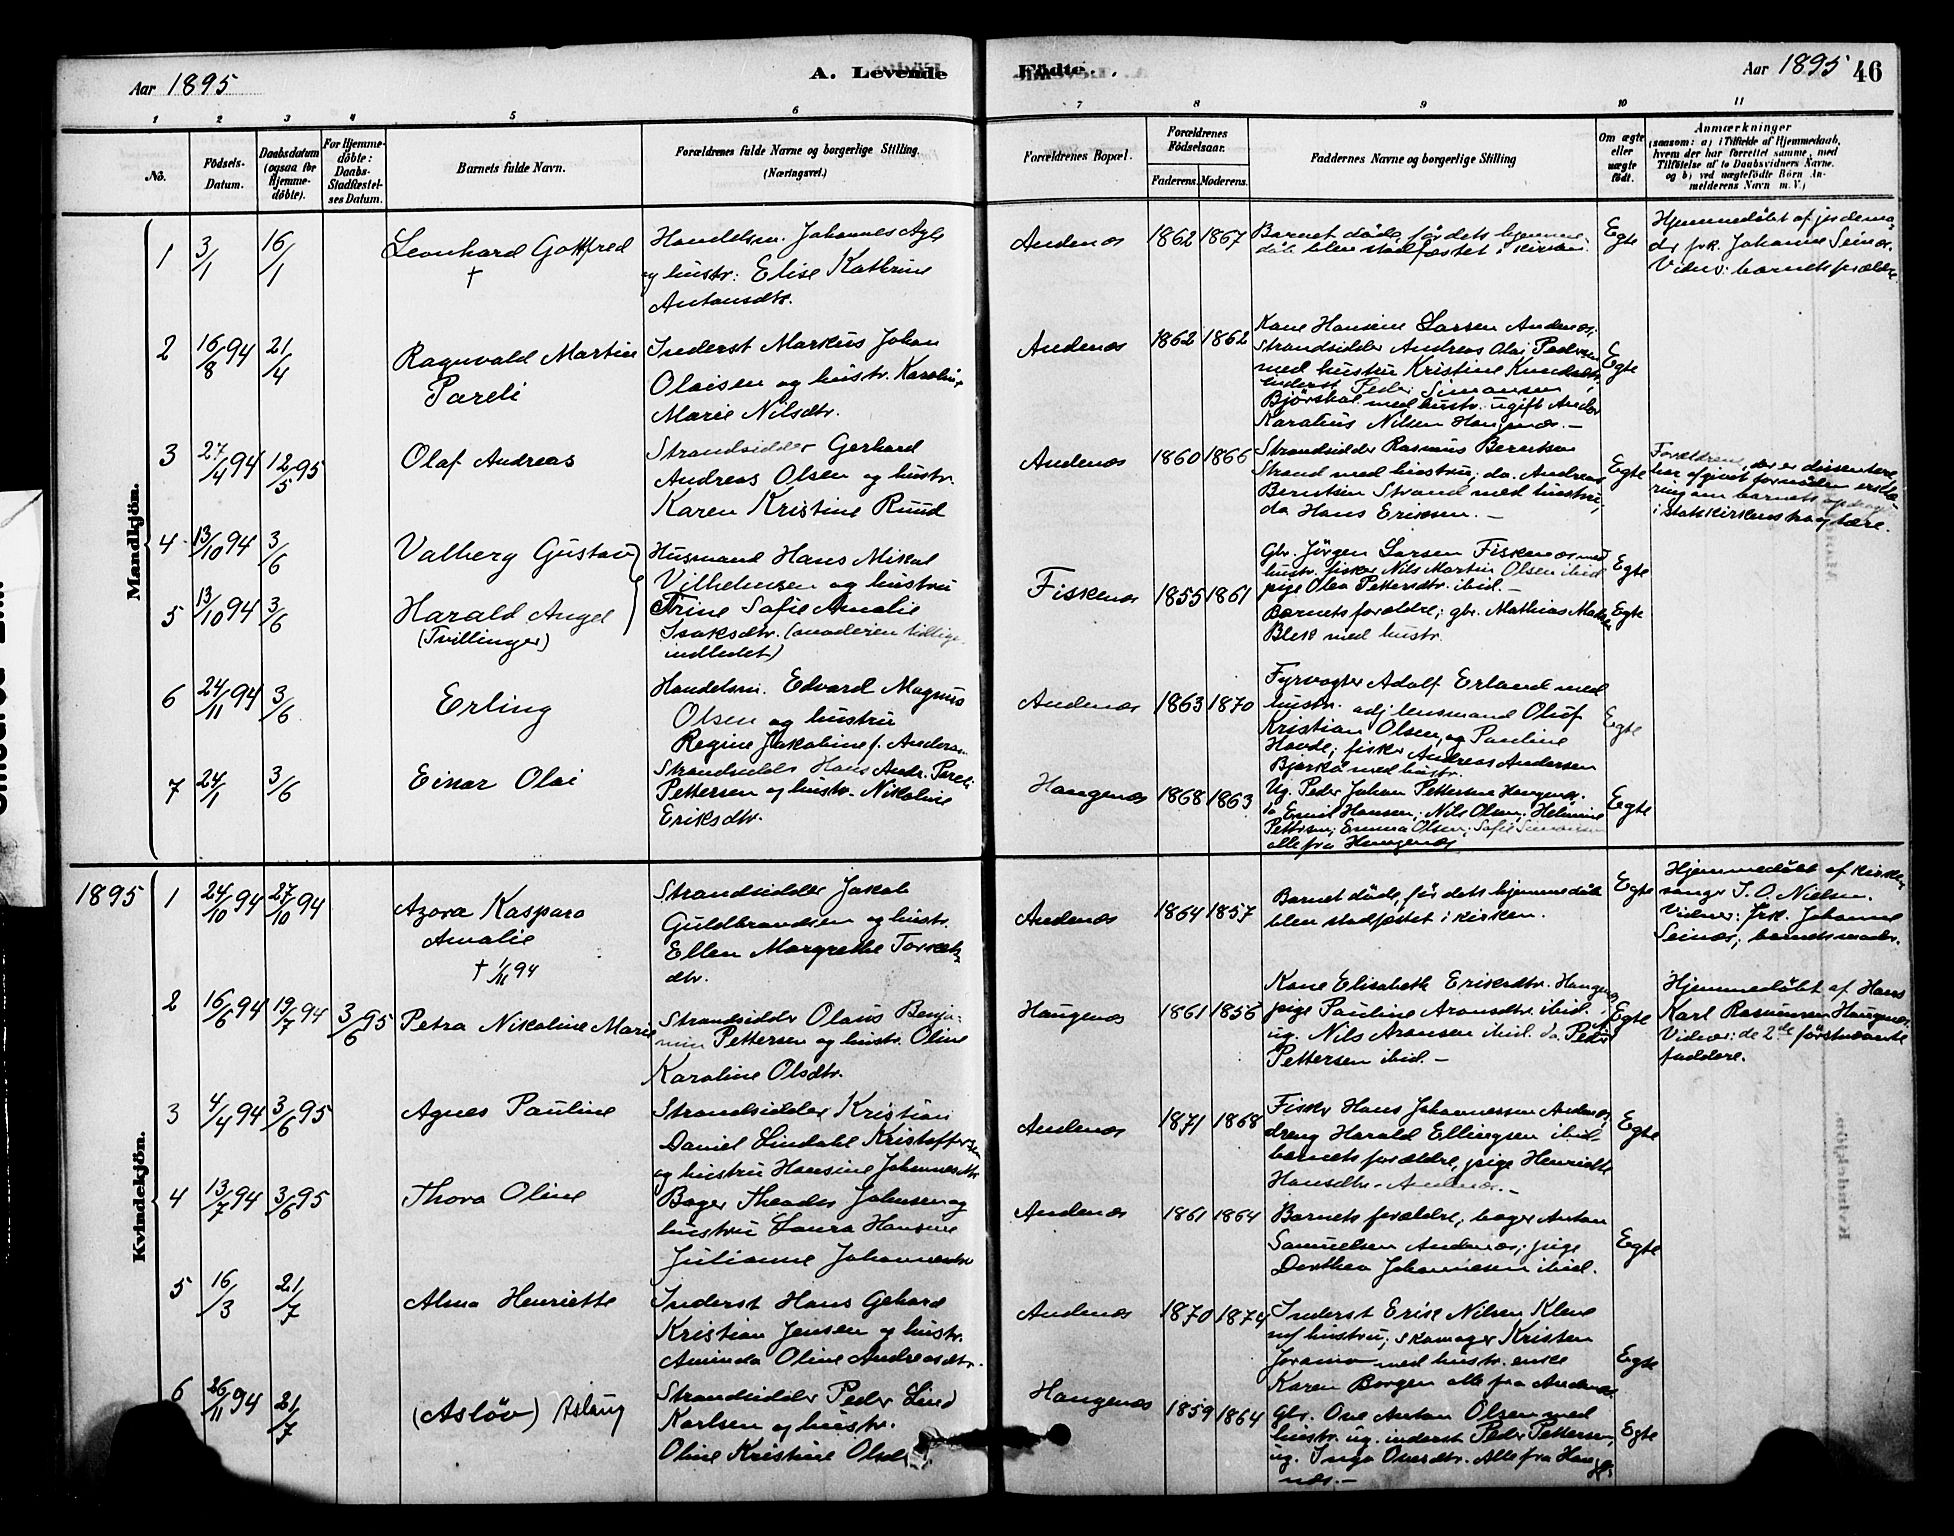 Aar 1895
A. Levende
Fødte.
Aar 1895
46
1 2 3 4 5 6 7 8 9 10 11
No.
Fødsels-
Datum.
Daabsdatum
(ogsaa for
Hjemme-
døbte).
For Hjemme-
døbte:
Daabs-
Stadfæstel-
ses Datum.
Barnets fulde Navn.
Forældrenes fulde Navne og borgerlige Stilling.
(Næringsvei.)
Forældrenes Bopæl.
Forældrenes
Fødselsaar.
Faderens. Moderens.
Faddernes Navne og borgerlige Stilling
Om ægte
eller
uægte
født.
Anmærkninger
(saasom: a) i Tilfælde af Hjemmedaab,
hvem der har forrettet samme, med
Tilføielse af to Daabsvidners Navne.
og b) ved uægtefødte Børn An-
melderens Navn m. V.)
Mandkjön.
1 3/1 16/1
Leonhard Gottfred
†
Handelsm. Johannes
og hustr: Elise Kathrine
Antonsdtr.
Andenæs 1862 1867
Barnet døde, før dets hjemme-
daab blev stadfæstet i kirken.
Egte
Hjemmedøbt af jordemo-
der frk. Johanne Seines.
Vidner: barnets forældre
2 16/8 94 21/4
Ragnvald Martin
Pareli
Inderst Markus Johan
Olaisen og hustr. Karoline
Marie Nilsdtr.
Andenæs 1862 1862
Kone Hansine Larsen Andenæs;
Strandsidder Andreas Olai Pedersen
med hustru Kristine Knudsdtr.
Inderst Peder Simonsen
Bjørskal med hustr. ugift
Karolius Nilsen Haugnæs.—
Egte
3 27/4 94 12/5 95
Olaf Andreas
Strandsidder Gerhard
Andreas Olsen og hustr.
Karen Kristine Ruud
Andenæs 1860 1866
Strandsidder Rasmus Berentsen
Strand med hustru; do. Andreas
Berntsen Strand med hustru;
do Hans Eriksen.—
Egte
Forældrene, der er dissentere,
har afgivet fornøden erklæ-
ring om barnets
i statskirkens troeslære.
4 13/10 94 3/6
Valberg Gustav
5 13/10 94 3/6
Harald Angel
(Tvillinger)
Husmand Hans Mikal
Vilhelmsen og hustru
Trine Sofie Amalie
Isaksdtr. (moderen tidlige
indledet)
Fiskenæs 1855 1861
Gbr. Jörgen Larsen Fiskenæs med
hustr. fisker Nils Martin Olsen ibid
pige Olea Pettersdtr. ibid.—
Barnets forældre; gbr. Mathias
Blek med hustr.
Egte
Egte
6 24/11 94 3/6
Erling
Handelsm. Edvard Magnus
Olsen og hustru
Regine Jakobine f. Andersen
Andenæs 1863 1870
Fyrvogter Adolf Erland med
hustr. adj lensmand Oluf
Kristian Olsen, og Pauline
Hovde; fisker Andreas Andersen
Bjørskal med hustr.
Egte
7 24/1 3/6
Einar Olai
Strandsidder Hans Andr. Pareli
Pettersen og hustr. Nikoline
Eriksdtr.
Haugenæs 1868 1863
Ug. Peder Johan Pettersen Haugenæs.
do Emil Hansen, Nils Olsen, Helmine
Pettersen; Emma Olsen; Sofie Simonsen
alle fra Haugenæs
Egte
Kvindekjön.
1895 1 24/10 94 27/10 94
Azora Kaspara
Amalie
† 1/11 94
Strandsidder Jakob
Guldbrandsen og hustr.
Ellen Margrethe
dtr.
Andenæs 1864 1857
Barnet døde, før dets hjemmedaab
blev stadfæstet i kirken.
Egte
Hjemmedøbt af kirke-
sanger J. O. Nielsen.
Vidner: Frk. Johanne
Seines; barnets moder.
2 16/6 94 19/7 94 3/6 95
Petra Nikoline Marie
Strandsidder Olaus Benja-
min Pettersen og hustr. Oline
Karoline Olsdtr.
Haugenæs 1861 1856
Kone Elisabeth Eriksdtr. Haugenæs
pige Pauline Aronsdtr. ibid.
ug. Nils Aronsen ibid. do. Peder
Pettersen ibid.—
Egte
Hjemmedøbt af Hans
Karl Rasmussen Haugnæs.
Vidner: de 2de førstnævnte
faddere.
3 4/4 94 3/6 95
Agnes Pauline
Strandsidder Kristian
Daniel Lindahl Kristoffersen
og hustru Hansine Johannesdtr
Andenæs 1871 1868
Fisker Hans Johannessen Andenæs,
dreng Harald Ellingsen ibid.
barnets forældre, pige Henriette
Hansdtr. Andenæs.—
Egte
4 13/7 94 3/6 95
Thora Oline
Bager Theodor Johnsen og
hustru Laura Hansine
Julianne Johannesdtr
Andenæs 1861 1864
Barnets forældre, bager Anton
Samuelsen Andenæs; pige
Dorthea Johannesen ibid.
Egte
5 16/3 21/7
Alma Henriette
Inderst Hans Gehard
Kristian Jensen og hustr.
Aminda Oline Andreasdtr.
Andenæs 1870 1874
Inderst Erik Nilsen Kleve
m/ hustru; skomager Kristen
Joramo med hustr. enke
Karen Borgen alle fra Andenæs.
Egte
6 26/11 94 21/7
(Asløv) Aslaug
Strandsidder Peder Lind
Karlsen og hustr.
Oline Kristine Olsdtr
Haugenæs 1859 1864
Gbr. Ove Anton Olsen med
hustr. ug. inderst Peder Pettersen,
ug. Inga Ovesdtr. Alle fra Hauge-
næs.—
Egte